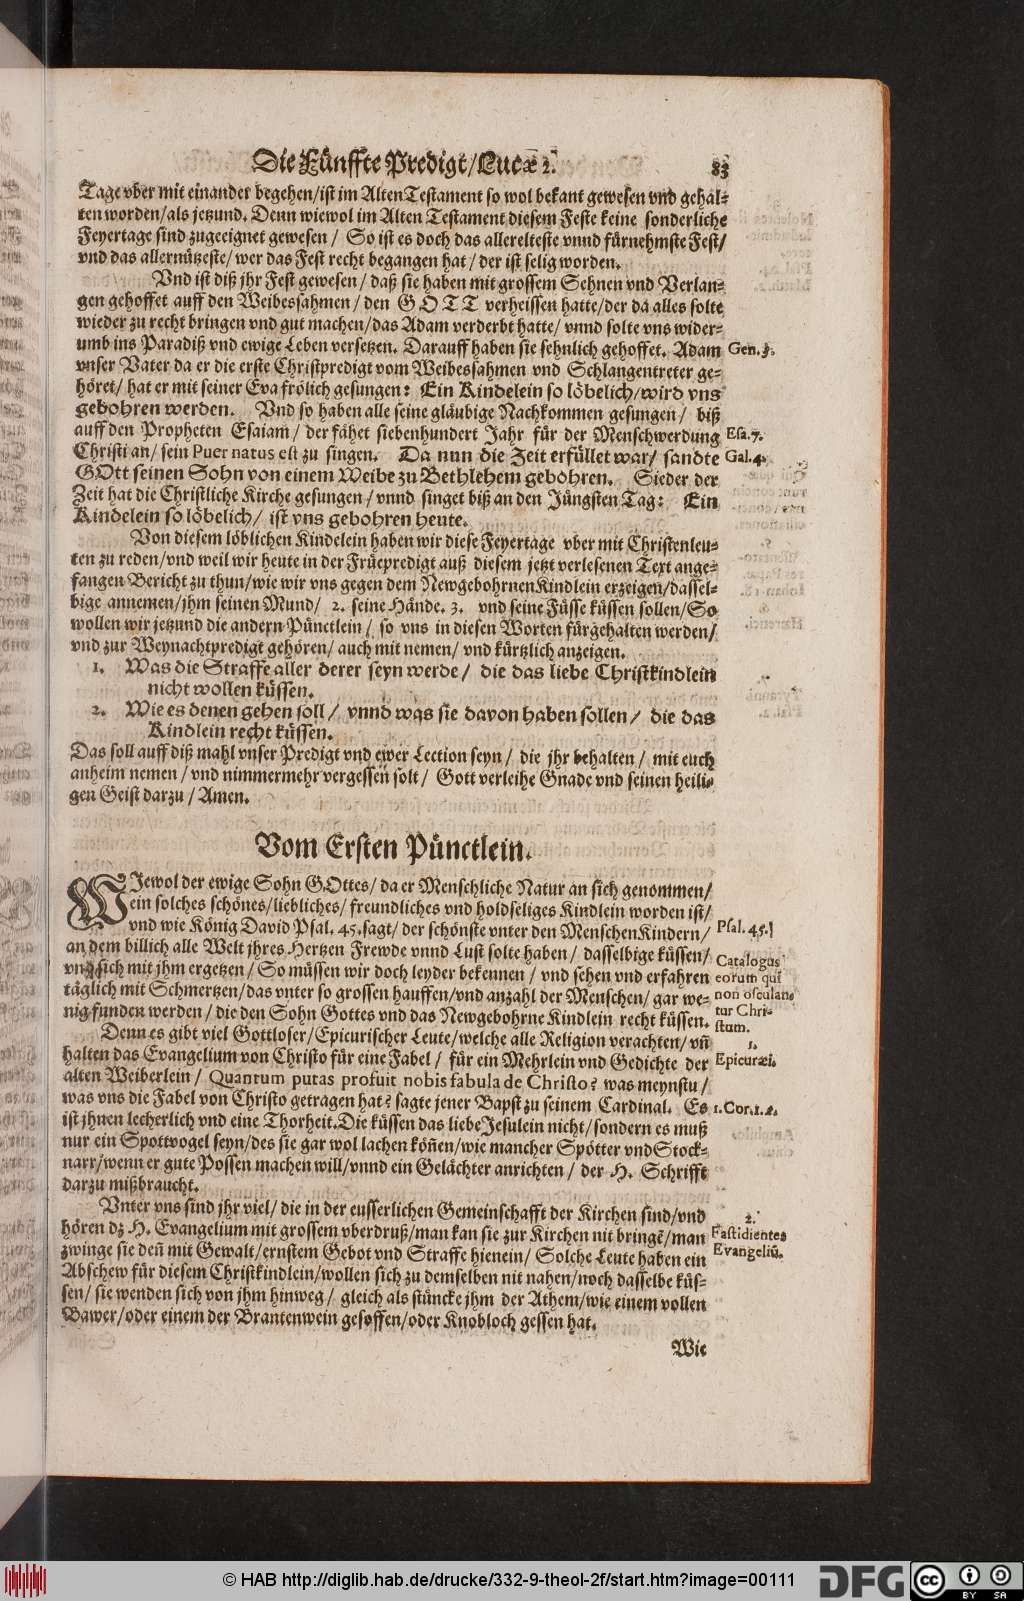 Die Fünffte Predigt/Lucæ 2.
83
Tage vber mit einander begehen/ist im Alten Testament so wol bekant gewesen vnd gehal-
ten worden/als jetzund. Denn wiewol im Alten Testament diesem Feste keine sonderliche
Feyertage sind zugeeignet gewesen / So ist es doch das allerelteste vnnd fürnehmste Fest/
vnd das allernützeste/ wer das Fest recht begangen hat / der ist selig worden.
Vnd ist diß jhr Fest gewesen / daß sie haben mit grossem Sehnen vnd Verlan-
gen gehoffet auff den Weibessahmen / den GOTT verheissen hatte/der da alles solte
wieder zu recht bringen vnd gut machen/das Adam verderbt hatte/ vnnd solte vns wider-
umb ins Paradiß vnd ewige Leben versetzen. Darauff haben sie sehnlich gehoffet. Adam
Gen. 3.
vnser Vater da er die erste Christpredigt vom Weibessahmen vnd Schlangentreter ge-
höret/ hat er mit seiner Eva frölich gesungen: Ein Kindelein so löbelich/wird vns
gebohren werden. Vnd so haben alle seine gläubige Nachkommen gesungen / biß
auff den Propheten Esaiam / der fähet siebenhundert Jahr für der Menschwerdung
Esa. 7.
Christi an/ sein Puer natus est zu singen. Da nun die Zeit erfüllet war/ sandte
Gal. 4.
GOtt seinen Sohn von einem Weibe zu Bethlehem gebohren. Sieder der
Zeit hat die Christliche Kirche gesungen / vnnd singet biß an den Jüngsten Tag: Ein
Kindelein so löbelich/ ist vns gebohren heute.
Von diesem löblichen Kindelein haben wir diese Feyertage vber mit Christenleu-
ten zu reden/vnd weil wir heute in der Früepredigt auß diesem jetzt verlesenen Text ange-
fangen Bericht zu thun/wie wir vns gegen dem NewgebohrnenKindlein erzeigen/dassel-
bige annemen/jhm seinen Mund/ 2. seine Hände. 3. vnd seine Füsse küssen sollen/So
wollen wir jetzund die andern Pünctlein / so vns in diesen Worten fürgehalten werden/
vnd zur Weynachtpredigt gehören/ auch mit nemen/ vnd kürtzlich anzeigen.
1. Was die Straffe aller derer seyn werde / die das liebe Christkindlein
nicht wollen küssen.
2. Wie es denen gehen soll / vnnd was sie davon haben sollen / die das
Kindlein recht küssen.
Das soll auff diß mahl vnser Predigt vnd ewer Lection seyn / die jhr behalten / mit euch
anheim nemen / vnd nimmermehr vergessen solt / Gott verleihe Gnade vnd seinen heili-
gen Geist darzu / Amen.
Vom Ersten Pünctlein.
WJewol der ewige Sohn GOttes/ da er Menschliche Natur an sich genommen/
ein solches schönes/liebliches/ freundliches vnd holdseliges Kindlein worden ist/
vnd wie König David Psal. 45. sagt/ der schönste vnter den MenschenKindern /
Psal. 45.
an dem billich alle Welt jhres Hertzen Frewde vnnd Lust solte haben / dasselbige küssen/
vnd sich mit jhm ergetzen / So müssen wir doch leyder bekennen / vnd sehen vnd erfahren
täglich mit Schmertzen/das vnter so grossen hauffen/vnd anzahl der Menschen/ gar we-
nig funden werden / die den Sohn Gottes vnd das Newgebohrne Kindlein recht küssen.
Catalogus
eorum qui
non osculan-
tur Chri-
stum.
Denn es gibt viel Gottloser/Epicurischer Leute/welche alle Religion verachten/ vñ
1.
halten das Evangelium von Christo für eine Fabel / für ein Mehrlein vnd Gedichte der
Epicuræi.
alten Weiberlein / Quantum putas profuit nobis fabula de Christo? was meynstu /
was vns die Fabel von Christo getragen hat? sagte jener Bapst zu seinem Cardinal. Es
1. Cor. 1. 2.
ist jhnen lecherlich vnd eine Thorheit. Die küssen das liebe Jesulein nicht/ sondern es muß
nur ein Spottvogel seyn/des sie gar wol lachen köñen/wie mancher Spötter vnd Stock-
narr/wenn er gute Possen machen will/vnnd ein Gelächter anrichten / der H. Schrifft
darzu mißbraucht.
Vnter vns sind jhr viel/ die in der eusserlichen Gemeinschafft der Kirchen sind/vnd
2.
hören dz H. Evangelium mit grossem vberdruß/man kan sie zur Kirchen nit bringẽ/man
Fastidientes
zwinge sie deñ mit Gewalt/ernstem Gebot vnd Straffe hienein/ Solche Leute haben ein
Evangeliũ.
Abschew für diesem Christkindlein/wollen sich zu demselben nit nahen/noch dasselbe küs-
sen/ sie wenden sich von jhm hinweg / gleich als stüncke jhm der Athem/wie einem vollen
Bawer/oder einem der Brantenwein gesoffen/oder Knobloch gessen hat.
Wie
© HAB http://diglib.hab.de/drucke/332-9-theol-2f/start.htm?image=00111
DFG
cc BY SA